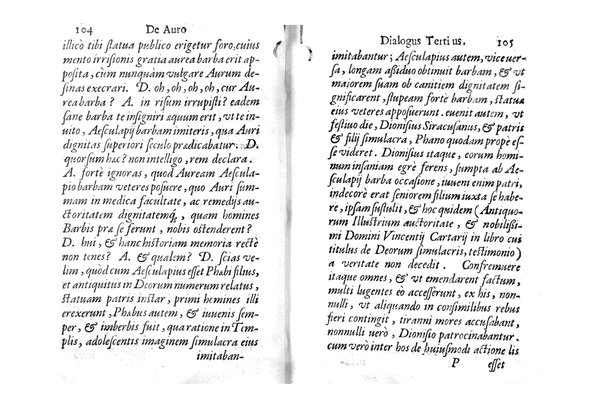 104 De Auro
illicò tibi statua publico erigetur foro, cuius
mento irrisionis gratia aurea barba erit ap-
posita, cum nunquàm vulgare Aurum de-
sinas execrari. D. oh, oh, oh, oh, cur Au-
rea barba? A. in risum irrupisti? eadem
sane barba te insigniri æquum erit, vt te in-
uito, Aesculapij barbam imiteris, qua Auri
dignitas superiori sęculo prædicabatur. D.
quorsum hæc? non intelligo, rem declara.
A. fortè ignoras, quod Auream Aescula-
pio barbam veteres posuere, quo Auri sum-
mam in medica facultate, ac remedijs au-
ctoritatem dignitatemq́, quam homines
Barbis præ se ferunt, nobis ostenderent?
D. hui, & hanc historiam memoria rectè
non tenes? A. & qualem? D. scias ve-
lim, quòd cum Aesculapius esset Phœbi filius,
et antiquitus in Deorum numerum relatus,
statuam patris instar, primi homines illi
erexerunt, Phœbus autem, & iuuenis sem-
per, & imberbis fuit, qua ratione in Tem-
plis, adolescentis imaginem simulacra eius
imitaban-
Dialogus Tertius. 105
imitabantur; Aesculapius autem, vice ver-
sa, longam assiduo obtinuit barbam, & vt
maiorem suam ob canitiem dignitatem si-
gnificarent, stupeam fortè barbam, statuæ
eius veteres apposuerunt. euenit autem, vt
festiuo die, Dionisius Siracusanus, & patris
& filij simulacra, Phano quodam propè es-
se videret. Dionisius itaque, eorum homi-
num insaniam egrè ferens, sumpta ab Ae-
sculapij barba occasione, iuuem enim patri,
indecorè erat seniorem filium iuxta se habe-
re, ipsam sustulit, & hoc quidem (Antiquo-
rum Illustrium auctoritate, & nobilissi-
mi Domini Vincentij Cartarij in libro cui
titulus de Deorum simulacris, testimonio)
a veritate non decedit. Confremuere
itaque omnes, & vt emendarent factum,
multi lugentes eò accesserunt, ex his, non-
nulli, vt aliquando in consimilibus rebus
fieri contingit, tiranni mores accusabant,
nonnulli verò, Dionisio patrocinabantur.
cum verò inter hos de huiusmodi actione lis
P esset